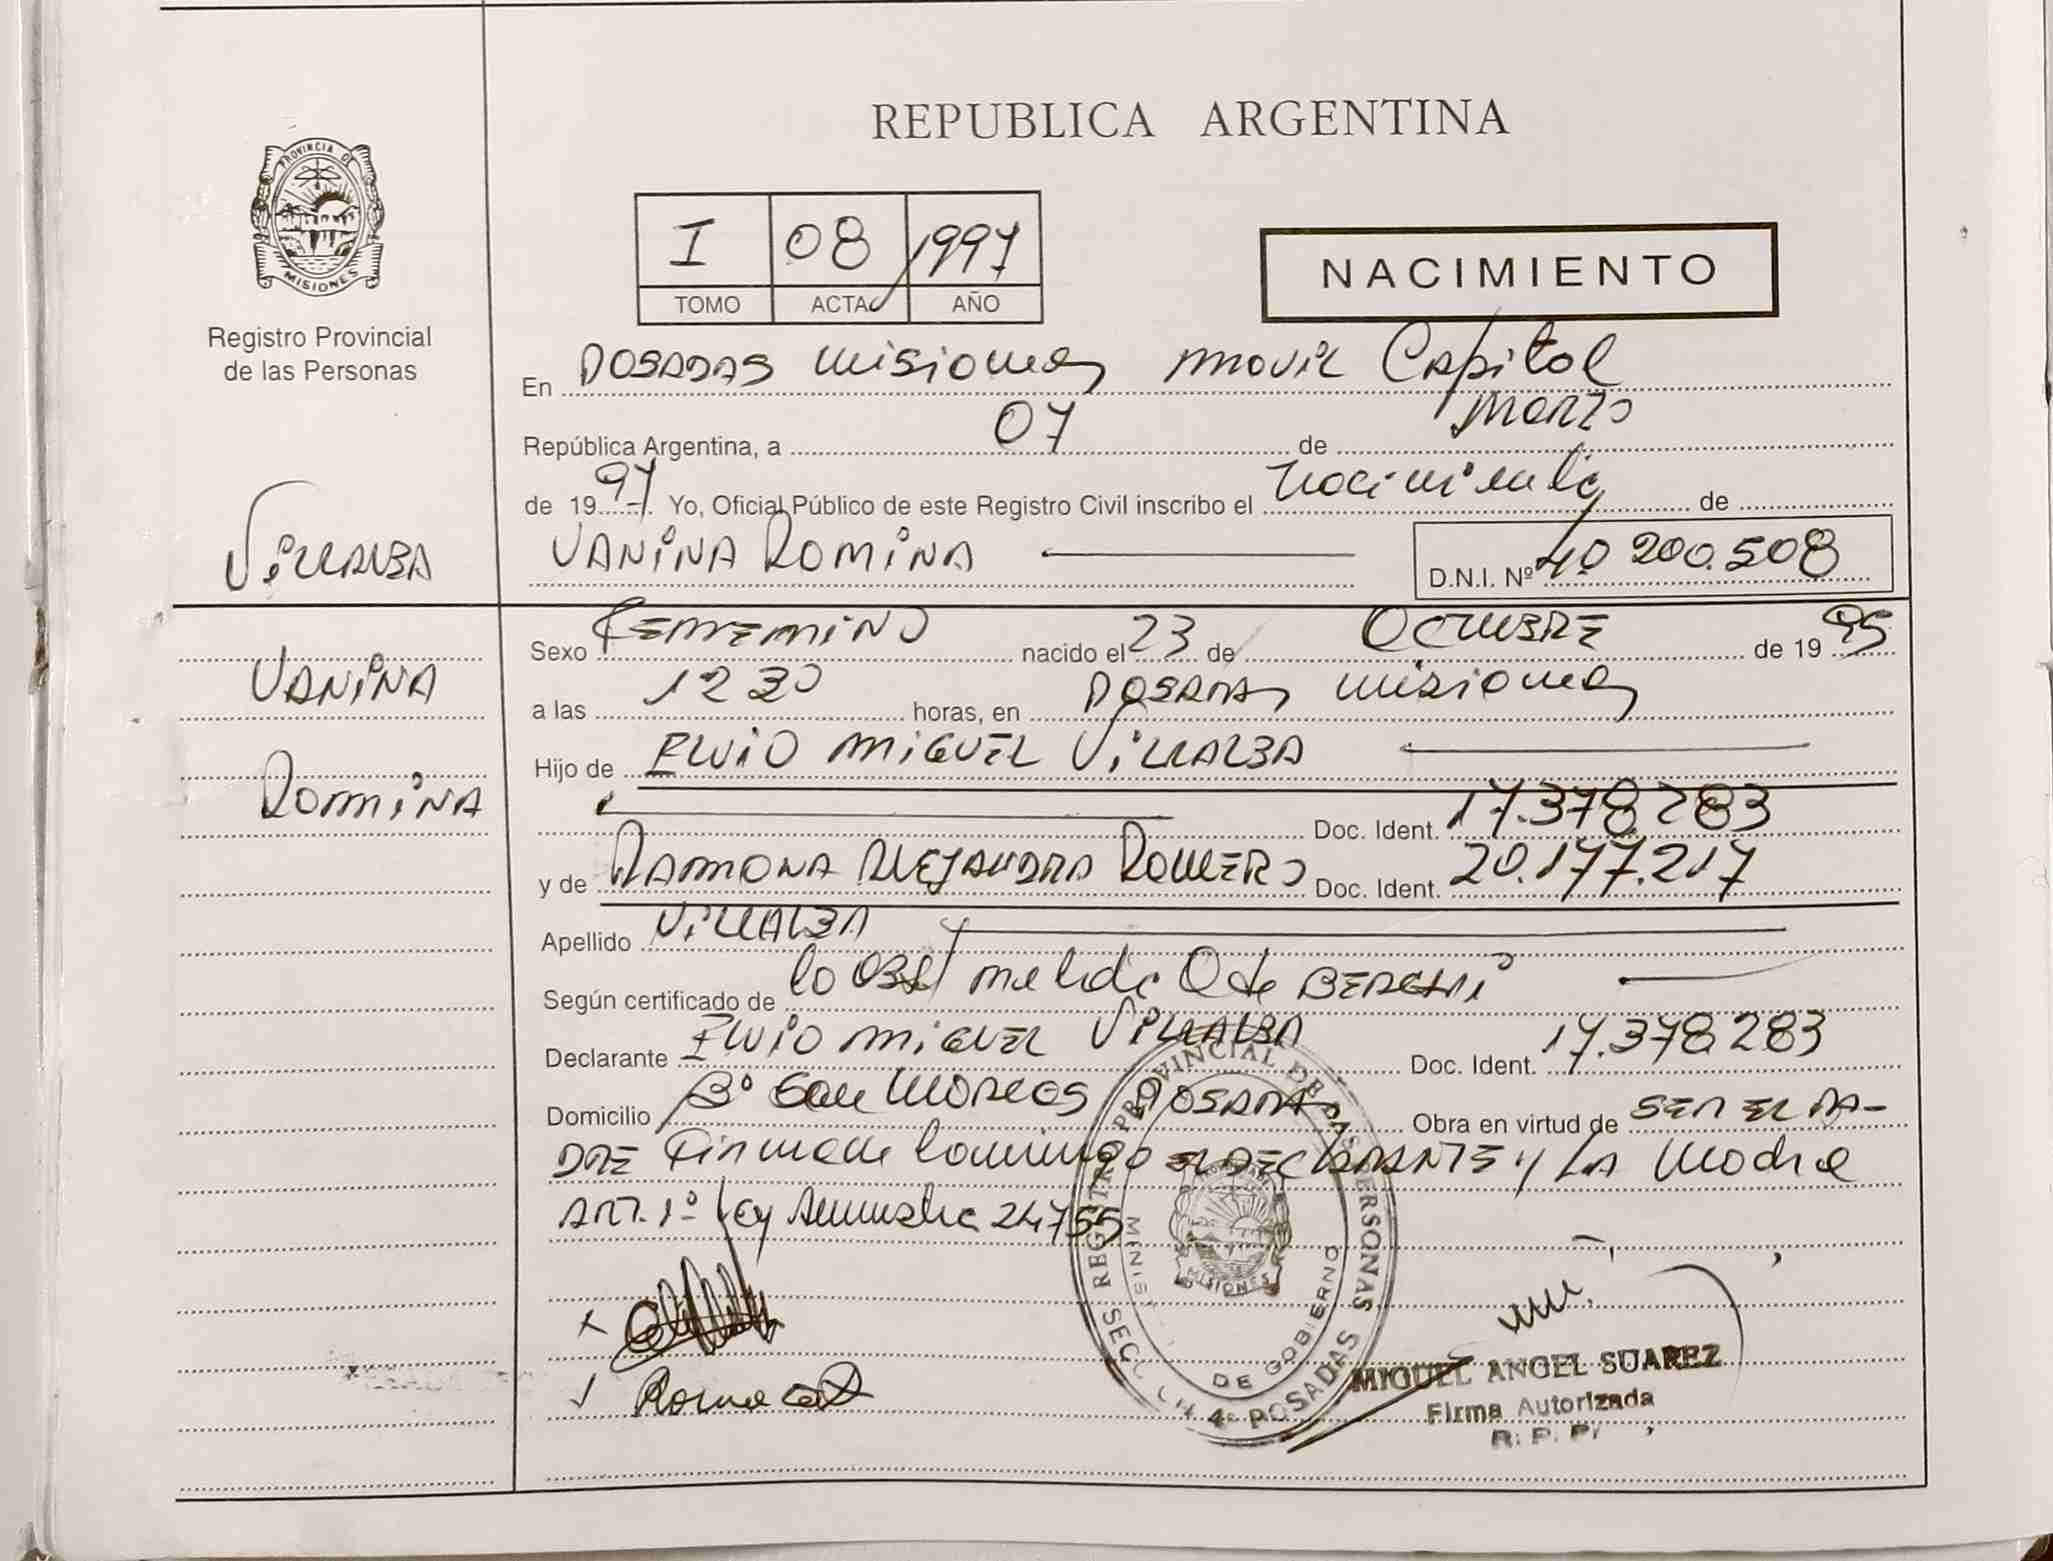 REPUBLICA ARGENTINA
PROVINCIA DE
MISIONES
Registro Provincial
de las Personas
I 08 1997
TOMO ACTA AÑO
NACIMIENTO
En POSADAS Misiones MOVIL Capital
República Argentina, a 07 de Marzo
de 1997 Yo, Oficial Público de este Registro Civil inscribo el nacimiento de
VANINA ROMINA D.N.I. Nº 40.200.508
VILLALBA
VANINA
ROMINA
Sexo FEMEMINO nacido el 23 de OCTUBRE de 1995
a las 12 30 horas, en POSADAS Misiones
Hijo de ELVIO MIGUEL VILLALBA
Doc. Ident. 17.378.283
y de RAMONA ALEJANDRA ROMERO Doc. Ident. 20.177.217
Apellido VILLALBA
Según certificado de la Obst de
Declarante ELVIO MIGUEL VILLALBA Doc. Ident. 17.378.283
Domicilio Bº San Marcos POSADAS Obra en virtud de SER EL PA-
DRE Firman el DECLARANTE y LA Madre
ART. 1º Ley 24755
REGISTRO PROVINCIAL DE LAS PERSONAS
DE GOBIERNO
MISIONES
4ª POSADAS
MIGUEL ANGEL SUAREZ
Firma Autorizada
R. P. P.